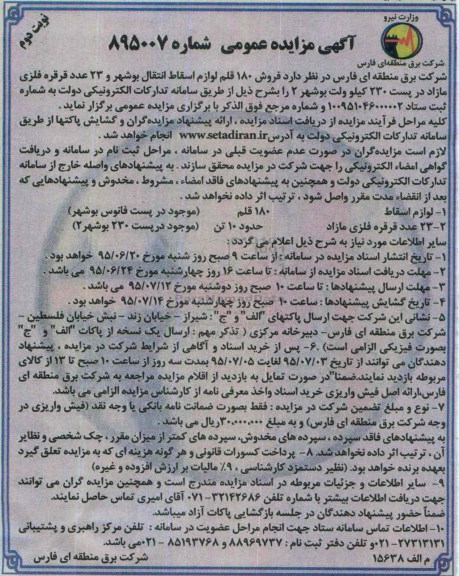 وزارت نیرو
نوبت دوم
آگهی مزایده عمومی شماره ۸۹۵۰۰۷
شرکت برق منطقه‌ای فارس
شرکت برق منطقه ای فارس در نظر دارد فروش ۱۸۰ قلم لوازم اسقاط انتقال بوشهر و ۲۳ عدد قرقره فلزی
مازاد در پست ۲۳۰ کیلو ولت بوشهر ۲ را بشرح ذیل از طریق سامانه تدارکات الکترونیکی دولت به شماره
ثبت ستاد ۱۰۰۹۵۱۰۴۶۰۰۰۰۲ و شماره مرجع فوق الذکر با برگزاری مزایده عمومی برگزار نماید .
کلیه مراحل فرآیند مزایده از دریافت اسناد مزایده ، ارائه پیشنهاد مزایده‌گران و گشایش پاکتها از طریق
سامانه تدارکات الکترونیکی دولت به آدرس www.setadiran.ir انجام خواهد شد .
لازم است مزایده‌گران در صورت عدم عضویت قبلی در سامانه ، مراحل ثبت نام در سامانه و دریافت
گواهی امضاء الکترونیکی را جهت شرکت در مزایده محقق سازند . به پیشنهادهای واصله خارج از سامانه
تدارکات الکترونیکی دولت و همچنین به پیشنهادهای فاقد امضاء ، مشروط ، مخدوش و پیشنهادهایی که
بعد از انقضاء مدت مقرر واصل شود ، ترتیب اثر داده نخواهد شد .
۱- لوازم اسقاط ۱۸۰ قلم (موجود در پست فانوس بوشهر)
۲- ۲۳ عدد قرقره فلزی مازاد حدود ۱۰ تن (موجود درپست ۲۳۰ بوشهر۲)
سایر اطلاعات مورد نیاز به شرح ذیل اعلام می گردد :
۱- تاریخ انتشار اسناد مزایده در سامانه : از ساعت ۹ صبح روز شنبه مورخ ۹۵/۰۶/۲۰ خواهد بود .
۲- مهلت دریافت اسناد مزایده از سامانه : تا ساعت ۱۶ روز چهارشنبه مورخ ۹۵/۰۶/۲۴ می باشد .
۳- مهلت ارسال پیشنهادها : تا ساعت ۱۰ صبح روز دوشنبه مورخ ۹۵/۰۷/۱۲ می باشد .
۴- تاریخ گشایش پیشنهادها : ساعت ۱۰ صبح روز چهارشنبه مورخ ۹۵/۰۷/۱۴ خواهد بود .
۵- نشانی این شرکت جهت ارسال پاکتهای "الف" و "ج" : شیراز - خیابان زند - نبش خیابان فلسطین -
شرکت برق منطقه ای فارس- دبیرخانه مرکزی ( تذکر مهم : ارسال یک نسخه از پاکات "الف" و "ج"
بصورت فیزیکی الزامی است) .۶- پس از خرید اسناد و آگاهی از شرایط شرکت در مزایده ، پیشنهاد
دهندگان می توانند از تاریخ ۹۵/۰۷/۰۳ لغایت ۹۵/۰۷/۰۵ بمدت سه روز از ساعت ۱۰ صبح تا ۱۳ از کالای
مربوطه بازدید نمایند.ضمنا"در صورت تمایل به بازدید از اقلام مزایده مراجعه به شرکت برق منطقه ای
فارس،ارائه اصل فیش واریزی خرید اسناد واخذ معرفی نامه از کارشناس مزایده الزامی می باشد.
۷- نوع و مبلغ تضمین شرکت در مزایده : فقط بصورت ضمانت نامه بانکی یا وجه نقد (فیش واریزی در
وجه شرکت برق منطقه ای فارس) و به مبلغ ۳۰.۰۰۰.۰۰۰ریال می باشد .
به پیشنهادهای فاقد سپرده ، سپرده های مخدوش، سپرده های کمتر از میزان مقرر ، چک شخصی و نظایر
آن ، ترتیب اثر داده نخواهد شد. ۸- پرداخت کسورات قانونی و هر گونه هزینه ای که به مزایده تعلق گیرد
بعهده برنده خواهد بود. (نظیر دستمزد کارشناسی ، ۹٪ مالیات بر ارزش افزوده و غیره)
۹- سایر اطلاعات و جزئیات مربوطه در اسناد مزایده مندرج است و همچنین مزایده گران می توانند
جهت دریافت اطلاعات بیشتر با شماره تلفن ۳۲۱۴۲۶۸۶-۰۷۱ آقای امیری تماس حاصل نمایند.
ضمناً حضور پیشنهاد دهندگان در جلسه بازگشایی پاکات آزاد میباشد.
۱۰- اطلاعات تماس سامانه ستاد جهت انجام مراحل عضویت در سامانه : تلفن مرکز راهبری و پشتیبانی
۲۷۳۱۳۱۳۱-۰۲۱و تلفن دفتر ثبت نام : ۸۸۹۶۹۷۳۷ و ۸۵۱۹۳۷۶۸ -۰۲۱می باشد.
م الف ۱۵۶۳۸ شرکت برق منطقه ای فارس